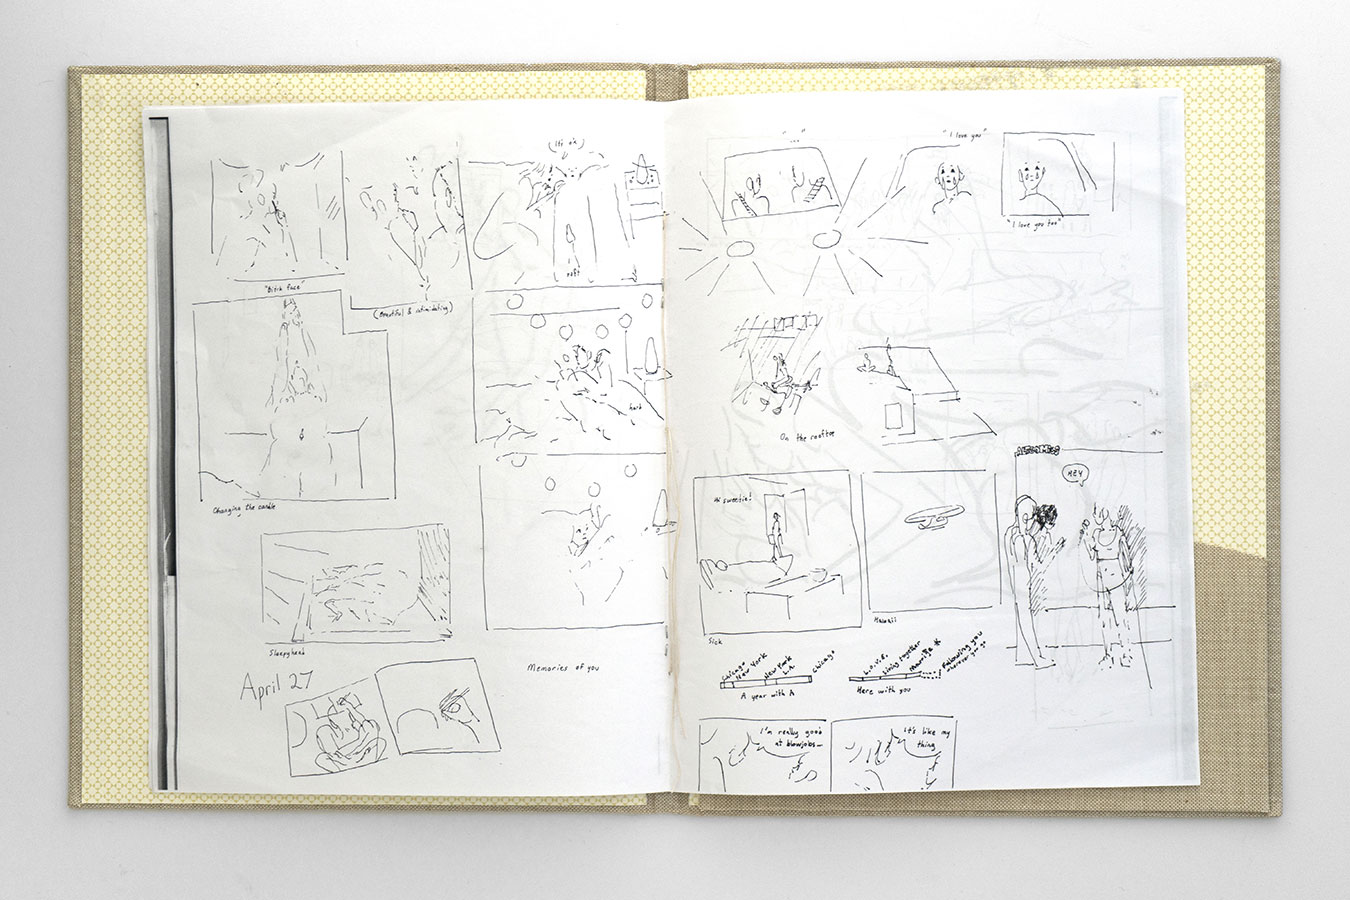 "Bitch face"
(Beautiful & intimidating)
Changing the candle
Sleepyhead
April 27
(It's ok)
raft
hard
Memories of you
"..."
"I love you"
"I love you too"
On the rooftop
Hi sweetie!
Sick
Hawaii
HEY
Chicago
New York
New York
L.A.
Chicago
A year with A
L.O.V.E.
Living together
Marriage *
Following you
wherever you go
Here with you
I'm really good
at blowjobs—
It's like my
thing